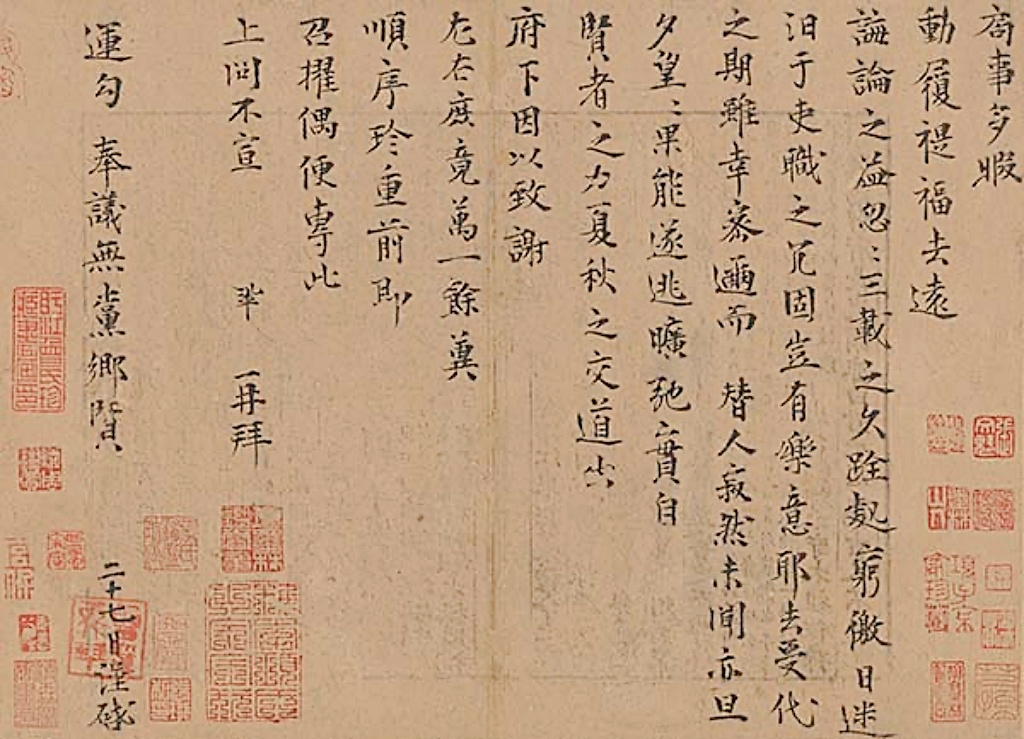 局事多暇
動履禔福去遠
誨論之益忽〻三載之久跧處窮徼日迷
汨于吏職之冗固豈有樂意耶去受代
之期雖幸密邇而替人寂然未聞亦旦
夕望〻果能遂逃曠弛實自
賢者之力夏秋之交道出
府下因以致謝
左右庶竟萬一餘冀
順序珍重前即
召擢偶便專此
上問不宣 鞏 再拜
運勾 奉議無黨鄉賢 二十七日謹啓